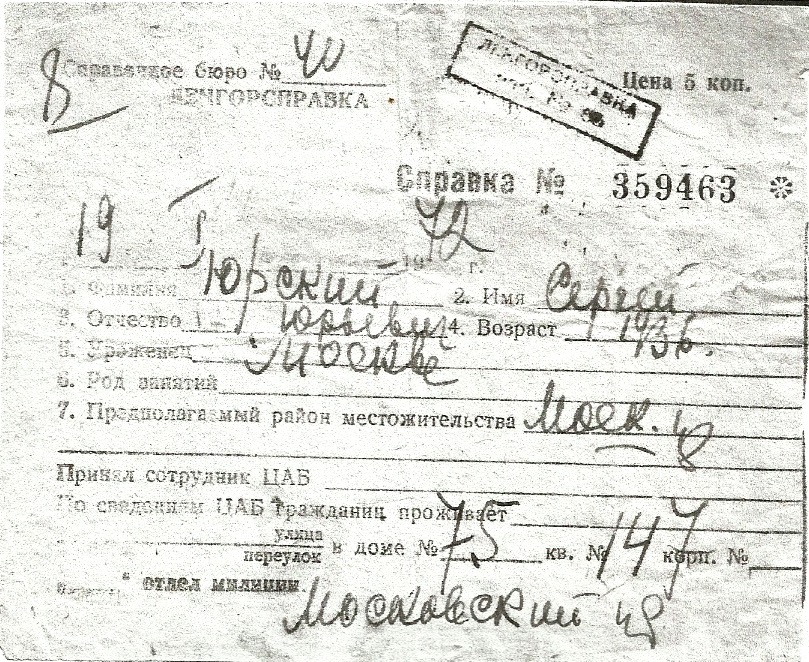 8
Справочное бюро № 40
ЛЕНГОРСПРАВКА
ЛЕНГОРСПРАВКА
Цена 5 коп.
Справка № 359463
19 I 1972 г.
1. Фамилия Юрский 2. Имя Сергей
3. Отчество Юрьевич 4. Возраст 1936.
5. Уроженец Москве
6. Род занятий
7. Предполагаемый район местожительства Моск.
Принял сотрудник ЦАБ
По сведениям ЦАБ гражданин проживает
улица
переулок в доме № 75 кв. № 147 корп. №
отдел милиции.
Московский